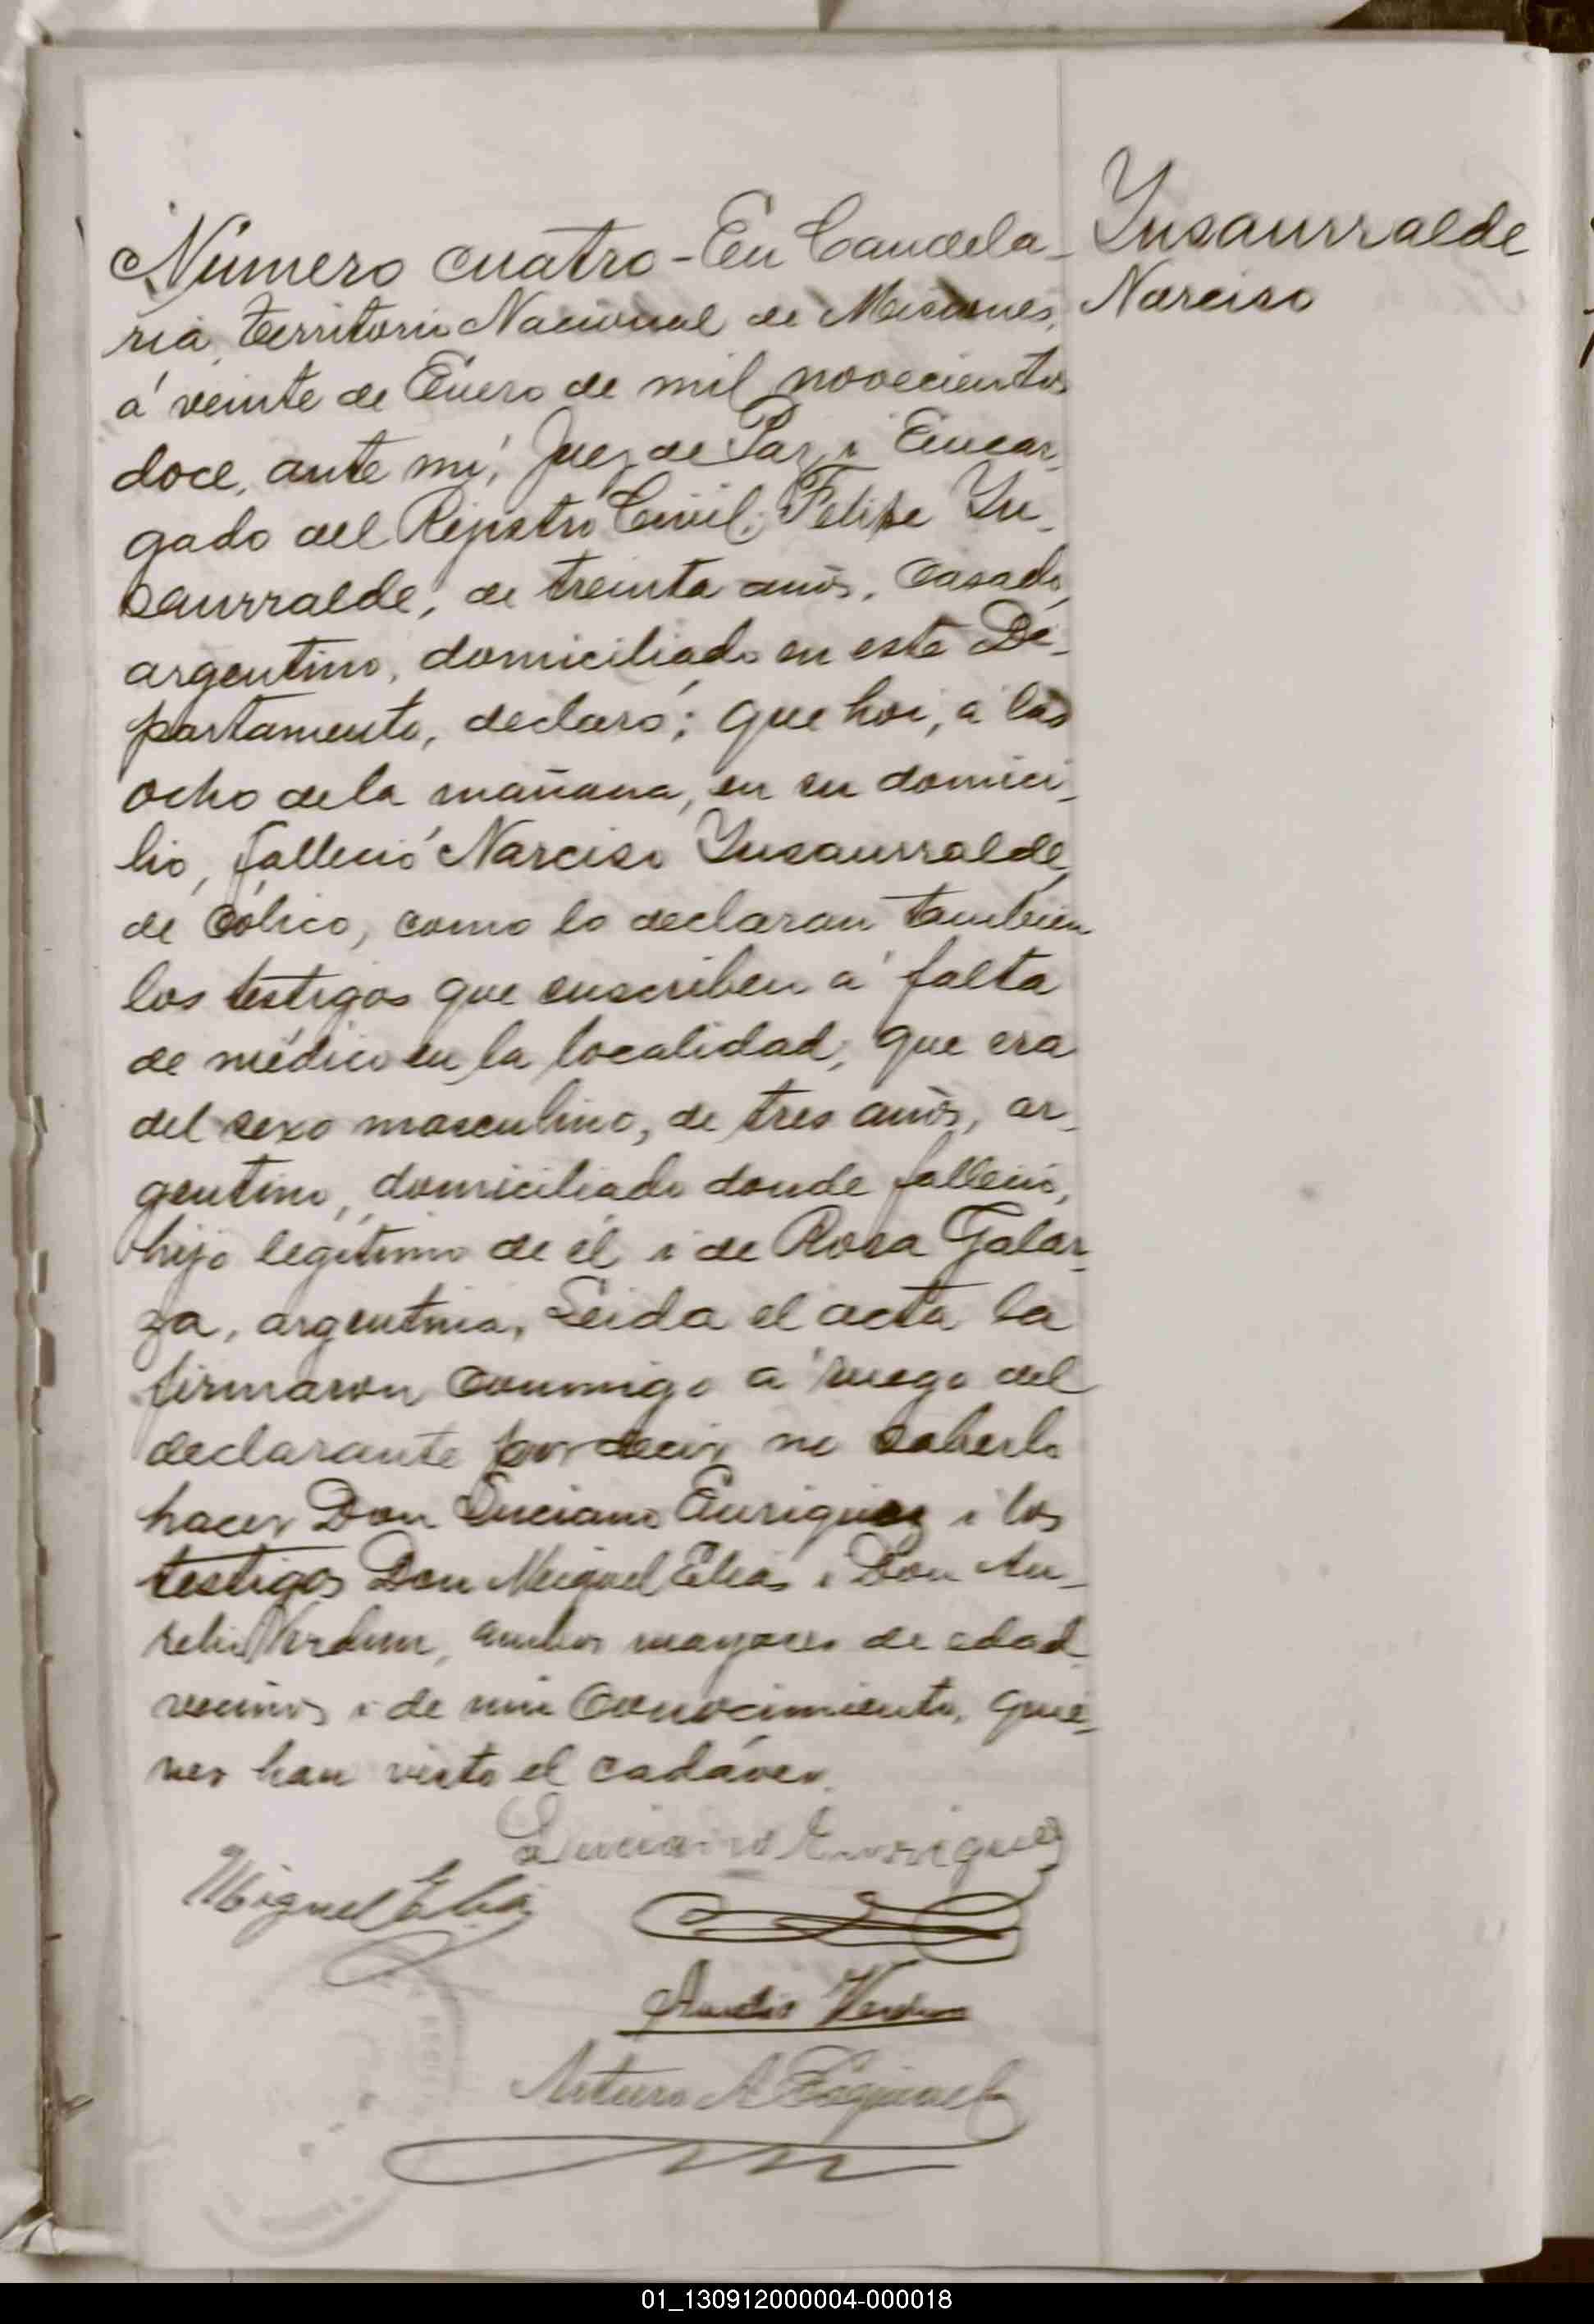 Ynsaurralde
Narciso
Número cuatro - En Candela-
ria, territorio Nacional de Misiones,
á veinte de Enero de mil novecientos
doce, ante mí, Juez de Paz i Encar-
gado del Registro Civil; Felipe Yn-
saurralde, de treinta años, casado,
argentino, domiciliado en este De-
partamento, declaró; que hoi, a las
ocho de la mañana, en su domici-
lio, falleció Narciso Ynsaurralde,
de cólico, como lo declaran también
los testigos que suscriben a falta
de médico en la localidad; que era
del sexo masculino, de tres años, ar-
gentino, domiciliado donde falleció,
hijo legítimo de él i de Rosa Galar-
za, argentina. Leida el acta la
firmaron conmigo a ruego del
declarante por decir no saberlo
hacer Don Luciano Enriquez i los
testigos Don Miguel Elias i Don Au-
relio Verdun, ambos mayores de edad
vecinos i de mi conocimiento, quie-
nes han visto el cadáver.
Luciano Enriquez
Miguel Elias
Aurelio Verdun
Arturo A
01_130912000004-000018